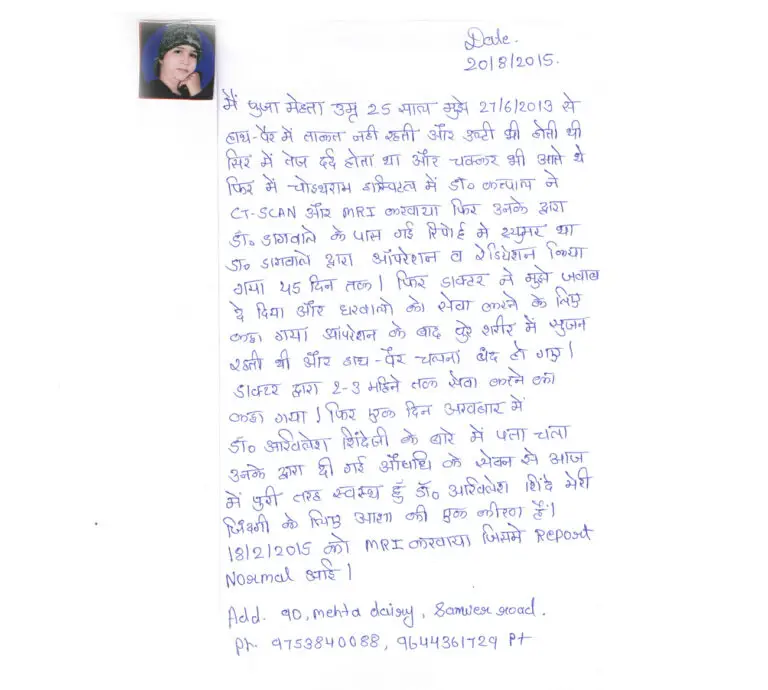 Date.
20/8/2015.
मैं पुजा मेहता उम्र 25 साल मुझे 27/6/2013 से
हाथ-पैर में ताकत नही रहती और उल्टी भी होती थी
सिर में तेज दर्द होता था और चक्कर भी आते थे
फिर में चोइथराम हास्पिटल में डॉ० कल्पाल ने
CT-SCAN और MRI करवाया फिर उनके द्वारा
डॉ० डागवाले के पास गई रिपोर्ट मे ट्युमर था
डॉ० डागवाले द्वारा ऑपरेशन व रेडियेशन किया
गया 45 दिन तक। फिर डाक्टर ने मुझे जवाब
दे दिया और घरवालो को सेवा करने के लिए
कहा गया ऑपरेशन के बाद पुरे शरीर में सुजन
रहती थी और हाथ-पैर चलना बंद हो गए।
डाक्टर द्वारा 2-3 महिने तक सेवा करने को
कहा गया। फिर एक दिन अखबार में
डॉ० अखिलेश शिंदेजी के बारे में पता चला
उनके द्वारा दी गई औषधि के सेवन से आज
में पुरी तरह स्वस्थ हुँ डॉ० अखिलेश शिंदे मेरी
जिंदगी के लिए आशा की एक कीरण हैं।
18/2/2015 को MRI करवाया जिसमे Report
Normal आई।
Add. 90, mehta dairy, Sanwer road.
Ph. 9753840088, 9644361729 P+